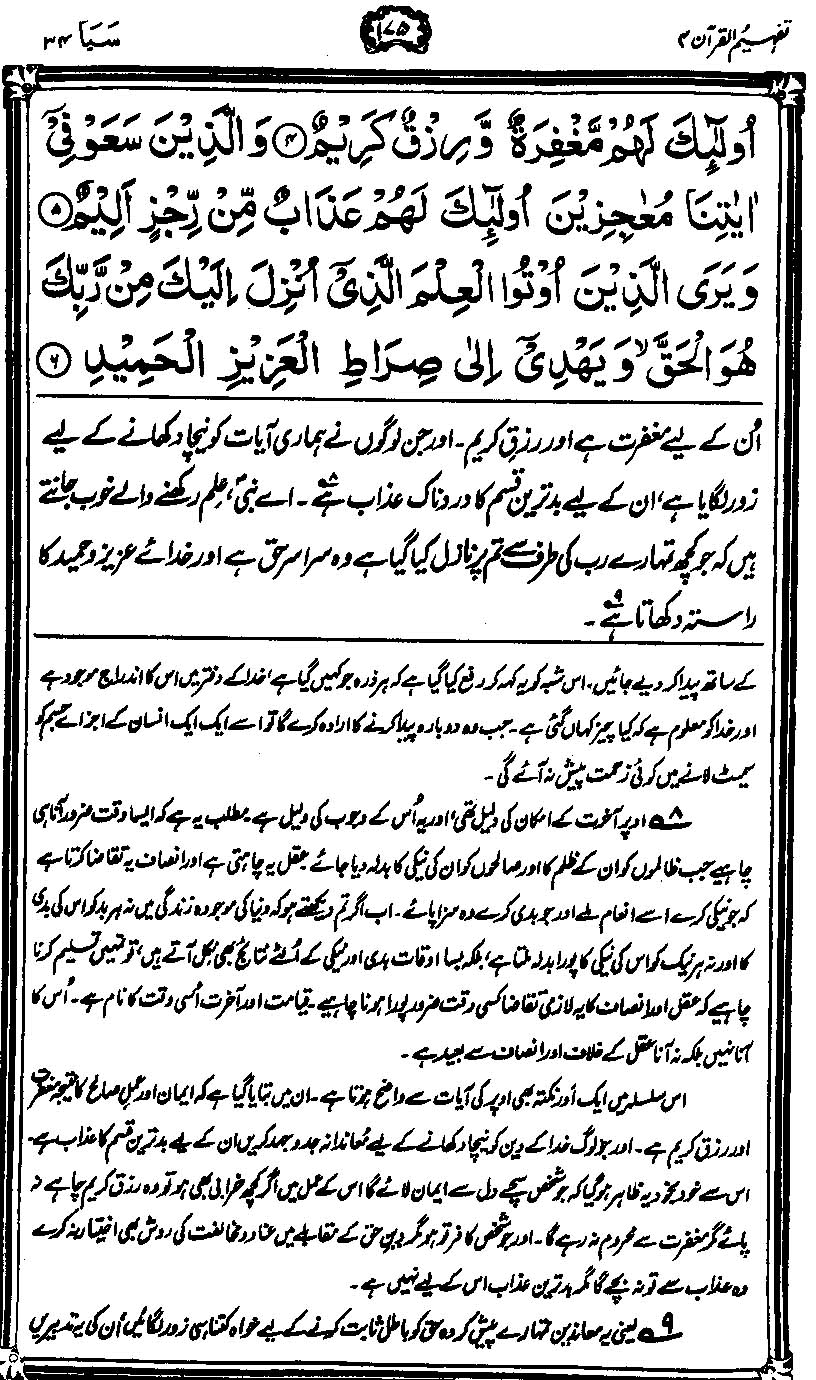 تفہیم القرآن ۴
۱۷۵
سَبَا ۳۴
اُولٰٓئِكَ لَهُمْ مَّغْفِرَةٌ وَّرِزْقٌ كَرِيْمٌ ﴿۴﴾ وَالَّذِيْنَ سَعَوْ فِيْۤ
اٰيٰتِنَا مُعٰجِزِيْنَ اُولٰٓئِكَ لَهُمْ عَذَابٌ مِّنْ رِّجْزٍ اَلِيْمٌ ﴿۵﴾
وَيَرَى الَّذِيْنَ اُوْتُوا الْعِلْمَ الَّذِيْۤ اُنْزِلَ اِلَيْكَ مِنْ رَّبِّكَ
هُوَ الْحَقَّ ۙ وَيَهْدِيْۤ اِلٰى صِرَاطِ الْعَزِيْزِ الْحَمِيْدِ ﴿۶﴾
اُن کے لیے مغفرت ہے اور رزقِ کریم۔ اور جن لوگوں نے ہماری آیات کو نیچا دکھانے کے لیے
زور لگایا ہے، ان کے لیے بدترین قسم کا دردناک عذاب ہے۸۔ اے نبیؐ، علم رکھنے والے خوب جانتے
ہیں کہ جو کچھ تمہارے رب کی طرف سے تم پر نازل کیا گیا ہے وہ سراسر حق ہے اور خدائے عزیز و حمید کا
راستہ دکھاتا ہے۹۔
کے ساتھ پیدا کر دیے جائیں۔ اس شبہ کو یہ کہہ کر رفع کیا گیا ہے کہ ہر ذرہ جو کہیں گیا ہے، خدا کے دفتر میں اس کا اندراج موجود ہے
اور خدا کو معلوم ہے کہ کیا چیز کہاں گئی ہے۔ جب وہ دوبارہ پیدا کرنے کا ارادہ کرے گا تو اسے ایک ایک انسان کے اجزائے جسم کو
سمیٹ لانے میں کوئی زحمت پیش نہ آئے گی۔
۸ اوپر آخرت کے امکان کی دلیل تھی، اور یہ اُس کے وجوب کی دلیل ہے۔ مطلب یہ ہے کہ ایسا وقت ضرور آنا ہی
چاہیے جب ظالموں کو ان کے ظلم کا اور صالحوں کو ان کی نیکی کا بدلہ دیا جائے۔ عقل یہ چاہتی ہے اور انصاف یہ تقاضا کرتا ہے
کہ جو نیکی کرے اسے انعام ملے اور جو بدی کرے وہ سزا پائے۔ اب اگر تم دیکھتے ہو کہ دنیا کی موجودہ زندگی میں نہ ہر بد کو اس کی بدی
کا اور نہ ہر نیک کو اس کی نیکی کا پورا بدلہ ملتا ہے، بلکہ بسا اوقات بدی اور نیکی کے اُلٹے نتائج بھی نکل آتے ہیں، تو تمہیں تسلیم کرنا
چاہیے کہ عقل اور انصاف کا یہ لازمی تقاضا کسی وقت ضرور پورا ہونا چاہیے۔ قیامت اور آخرت اُسی وقت کا نام ہے۔ اُس کا
آنا نہیں بلکہ نہ آنا عقل کے خلاف اور انصاف سے بعید ہے۔
اس سلسلہ میں ایک اَور نکتہ بھی اوپر کی آیات سے واضح ہوتا ہے۔ ان میں بتایا گیا ہے کہ ایمان اور عملِ صالح کا نتیجہ مغفرت
اور رزق کریم ہے۔ اور جو لوگ خدا کے دین کو نیچا دکھانے کے لیے معاندانہ جدوجہد کریں ان کے لیے بدترین قسم کا عذاب ہے۔
اس سے خود بخود یہ ظاہر ہو گیا کہ جو شخص سچے دل سے ایمان لائے گا اس کے عمل میں اگر کچھ خرابی بھی ہو تو وہ رزق کریم چاہے نہ
پائے مگر مغفرت سے محروم نہ رہے گا۔ اور جو شخص کافر تو ہو مگر دینِ حق کے مقابلے میں عناد و مخالفت کی روش بھی اختیار نہ کرے
وہ عذاب سے تو نہ بچے گا مگر بدترین عذاب اس کے لیے نہیں ہے۔
۹ یعنی یہ معاندین تمہارے پیش کردہ حق کو باطل ثابت کرنے کے لیے خواہ کتنا ہی زور لگائیں، اُن کی یہ تدبیریں